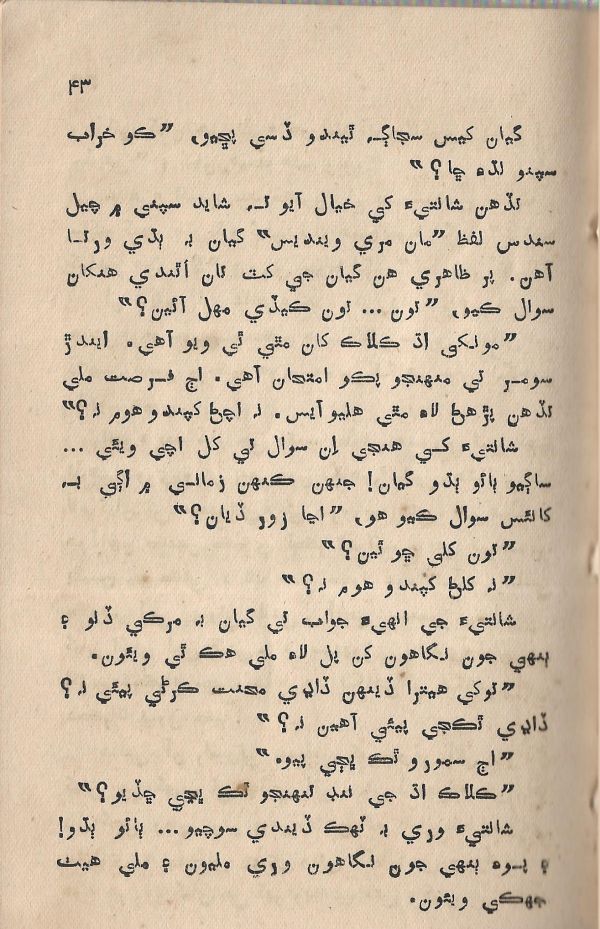 ۴۳
گيان کيس سجاڳ ٿيندو ڏسي پڇيو، ”ڪو خراب
سپنو لڌه ڇا؟“
تڏهن شانتيءَ کي خيال آيو تہ شايد سپني ۾ چيل
سندس لفظ ”مان مري وينديس“ گيان بہ ٻڌي ورتا
آهن. پر ظاهري هن گيان جي کٽ تان اُٿندي هنکان
سوال ڪيو، ”تون... تون ڪيڏي مهل آئين؟“
”مونکي اڌ ڪلاڪ کان مٿي ٿي ويو آهي. ايندڙ
سومر تي منهنجو پڪو امتحان آهي. اڄ فرصت ملي
تڏهن پڙهڻ لاءِ هتي هليو آيس. نہ اچڻ کپندو هوم نہ؟“
شانتيءَ کي هنجي اِن سوال تي کل اچي ويئي...
ساڳيو ٻائو ٻڌو گيان! جنهن ڪنهن زماني ۾ اڳي بہ
کانئس سوال ڪيو هو، ”اڃا زور ڏيان؟“
”تون کلي ڇو ٿين؟“
”نہ کلڻ کپندو هوم نہ؟“
شانتيءَ جي انهيءَ جواب تي گيان بہ مرڪي ڏنو ۽
ٻنهي جون نگاهون کن پل لاءِ ملي هڪ ٿي ويئون.
”توکي هيترا ڏينهن ڏاڍي محنت ڪرڻي پيئي نہ؟
ڏاڍي ٿڪجي پيئي آهين نہ؟“
”اڄ سمورو ٿڪ ڀڄي پيو.“
”ڪلاڪ اڌ جي ننڊ تنهنجو ٿڪ ڀڃي ڇڏيو؟“
شانتيءَ وري بہ ٽهڪ ڏيندي سوچيو... ٻائو ٻڌو!
۽ پوءِ ٻنهي جون نگاهون وري مليون ۽ ملي هيٺ
جهڪي ويئون.